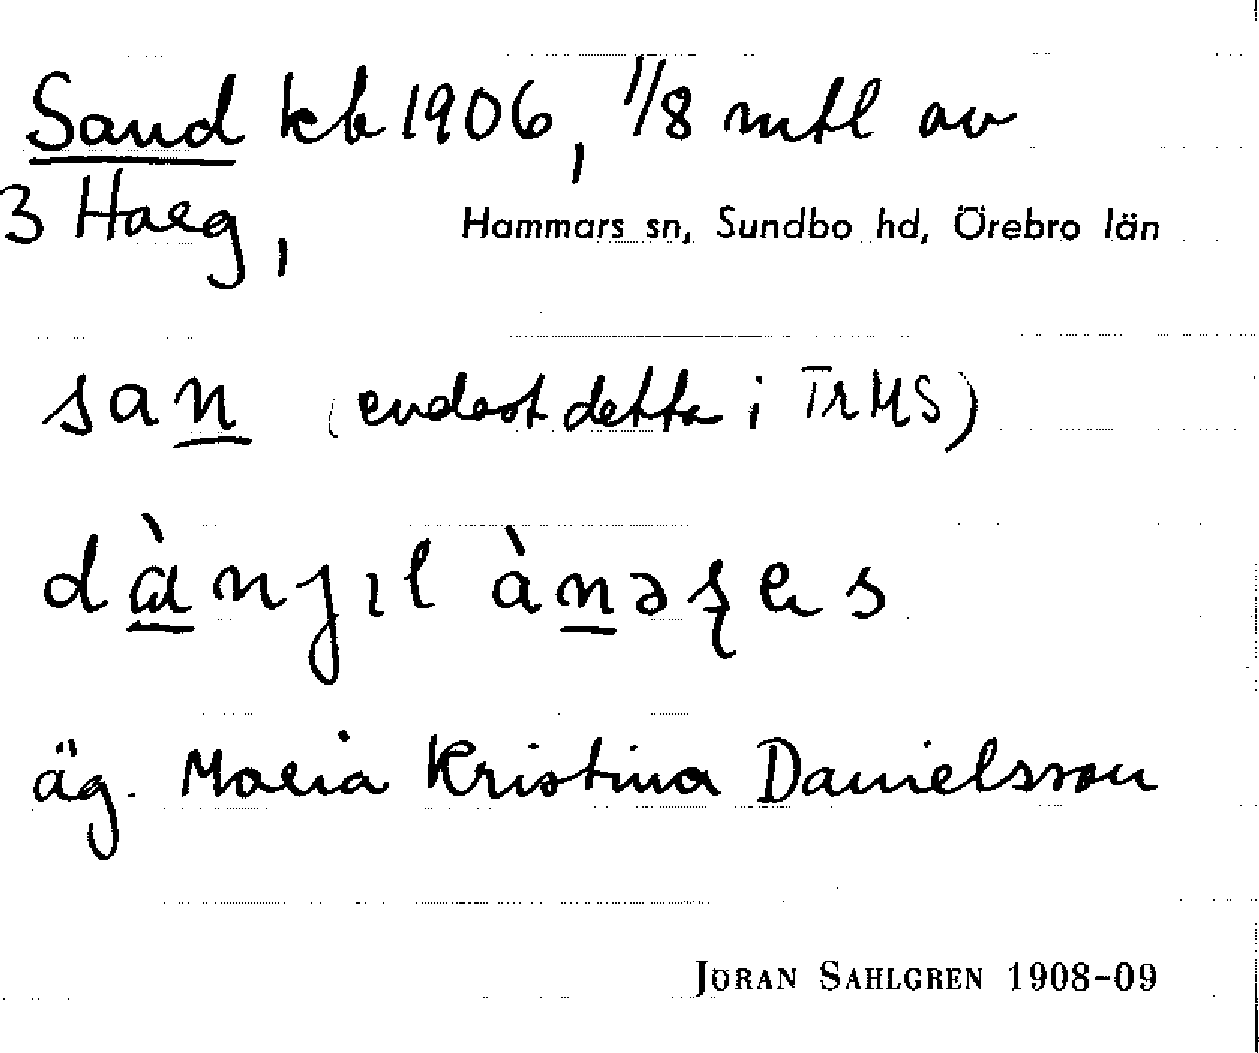 Sand kb 1906, 1/8 mtl av
3 Harg,
Hammars sn, Sundbo hd, Örebro län
san (endast detta i TrMS)
äg. Maria Kristina Danielsson
JÖRAN SAHLGREN 1908-09